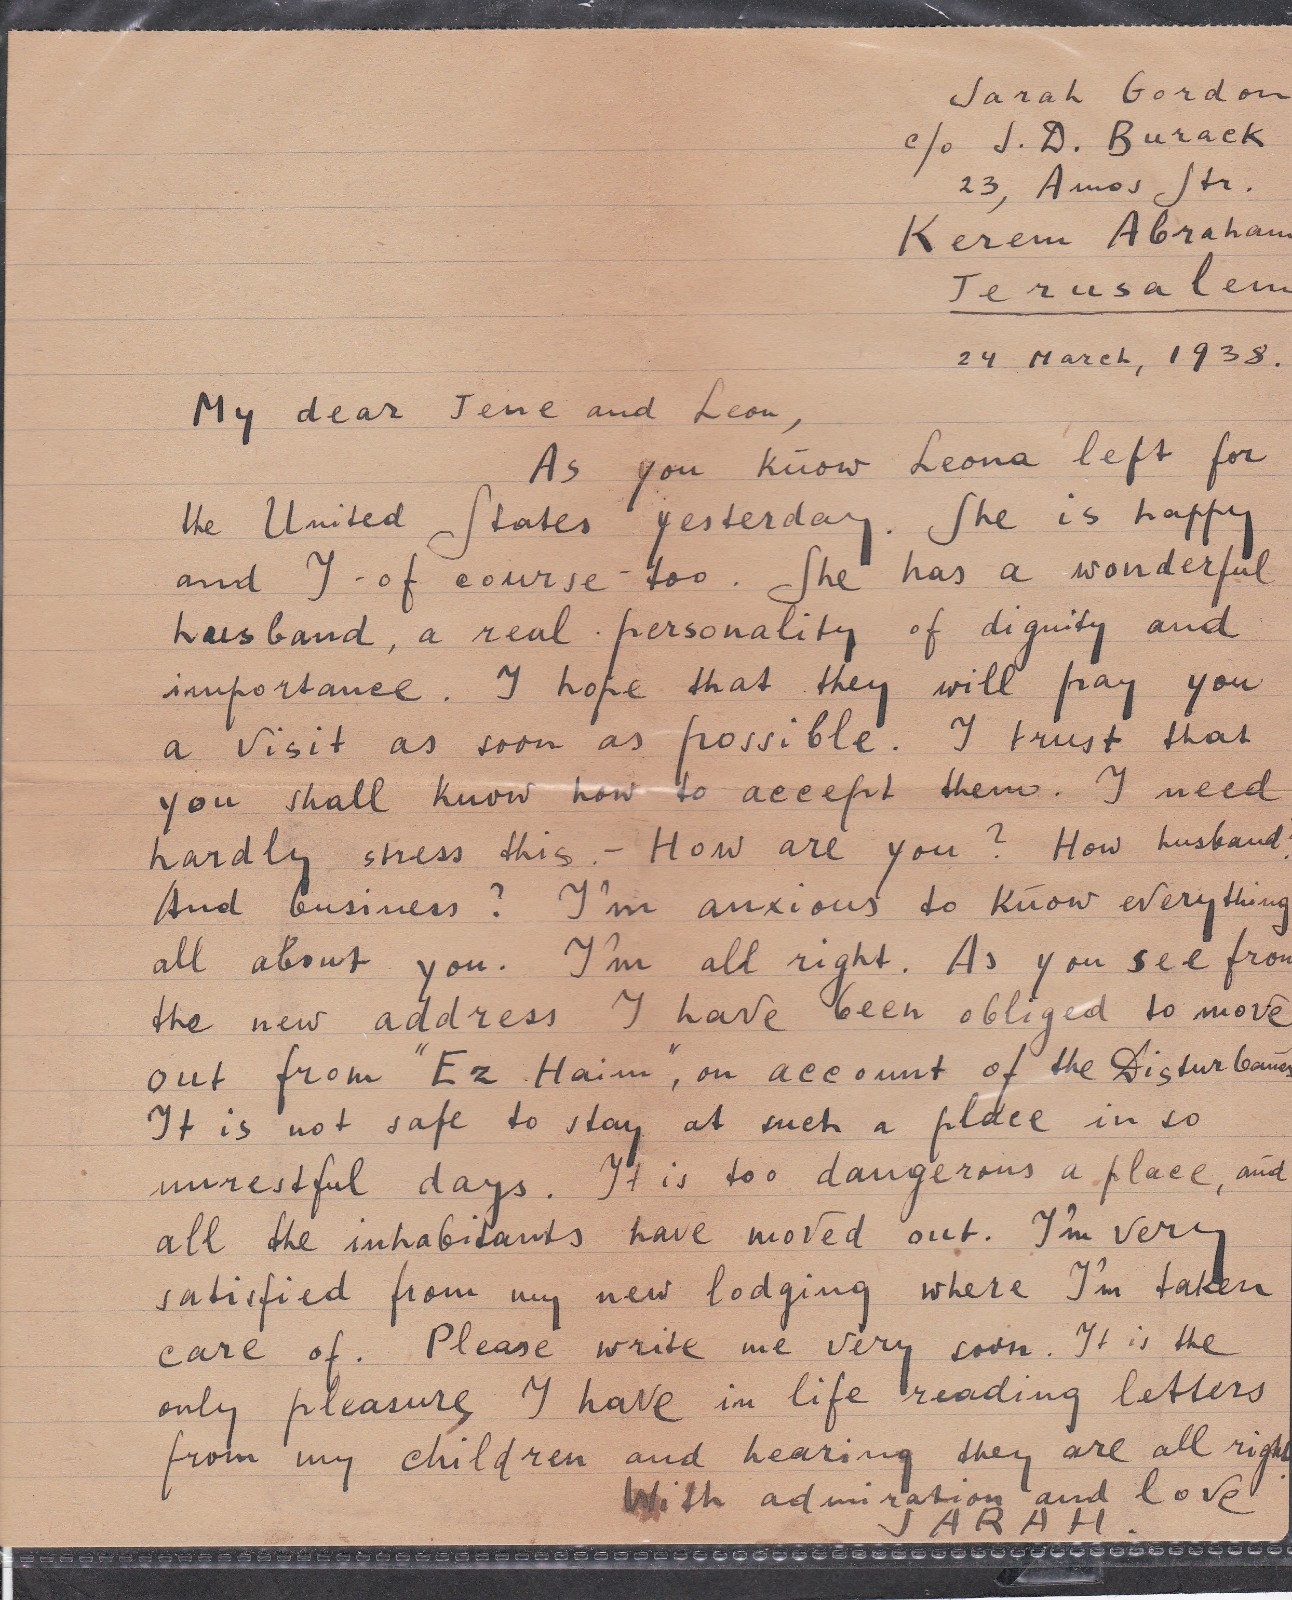 Sarah Gordon
c/o S. D. Burack
23, Amos Str.
Kerem Abraham
Jerusalem
24 March, 1938.
My dear Jene and Leon,
As you know Leona left for
the United States yesterday. She is happy
and I - of course - too. She has a wonderful
husband, a real personality of dignity and
importance. I hope that they will pay you
a visit as soon as possible. I trust that
you shall know how to accept them. I need
hardly stress this. - How are you? How husband?
And business? I'm anxious to know everything
all about you. I'm all right. As you see from
the new address I have been obliged to move
out from "Ez Haim", on account of the Disturbances
It is not safe to stay at such a place in so
unrestful days. It is too dangerous a place, and
all the inhabitants have moved out. I'm very
satisfied from my new lodging where I'm taken
care of. Please write me very soon. It is the
only pleasure I have in life reading letters
from my children and hearing they are all right.
With admiration and love
SARAH.